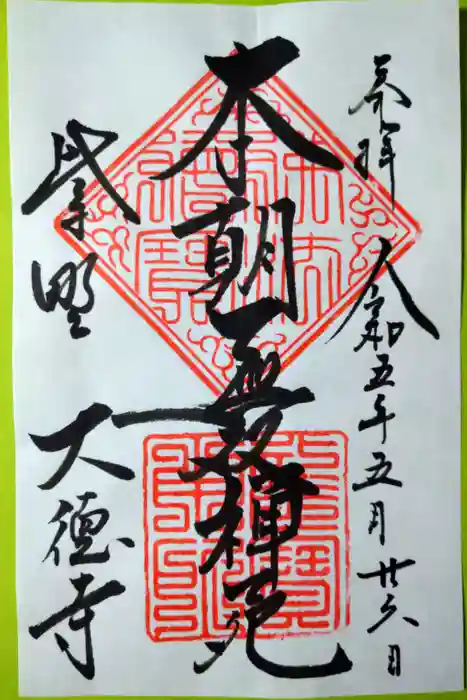 奉拝 令和五年五月廿六日
本朝無雙禅苑
紫野 大徳寺